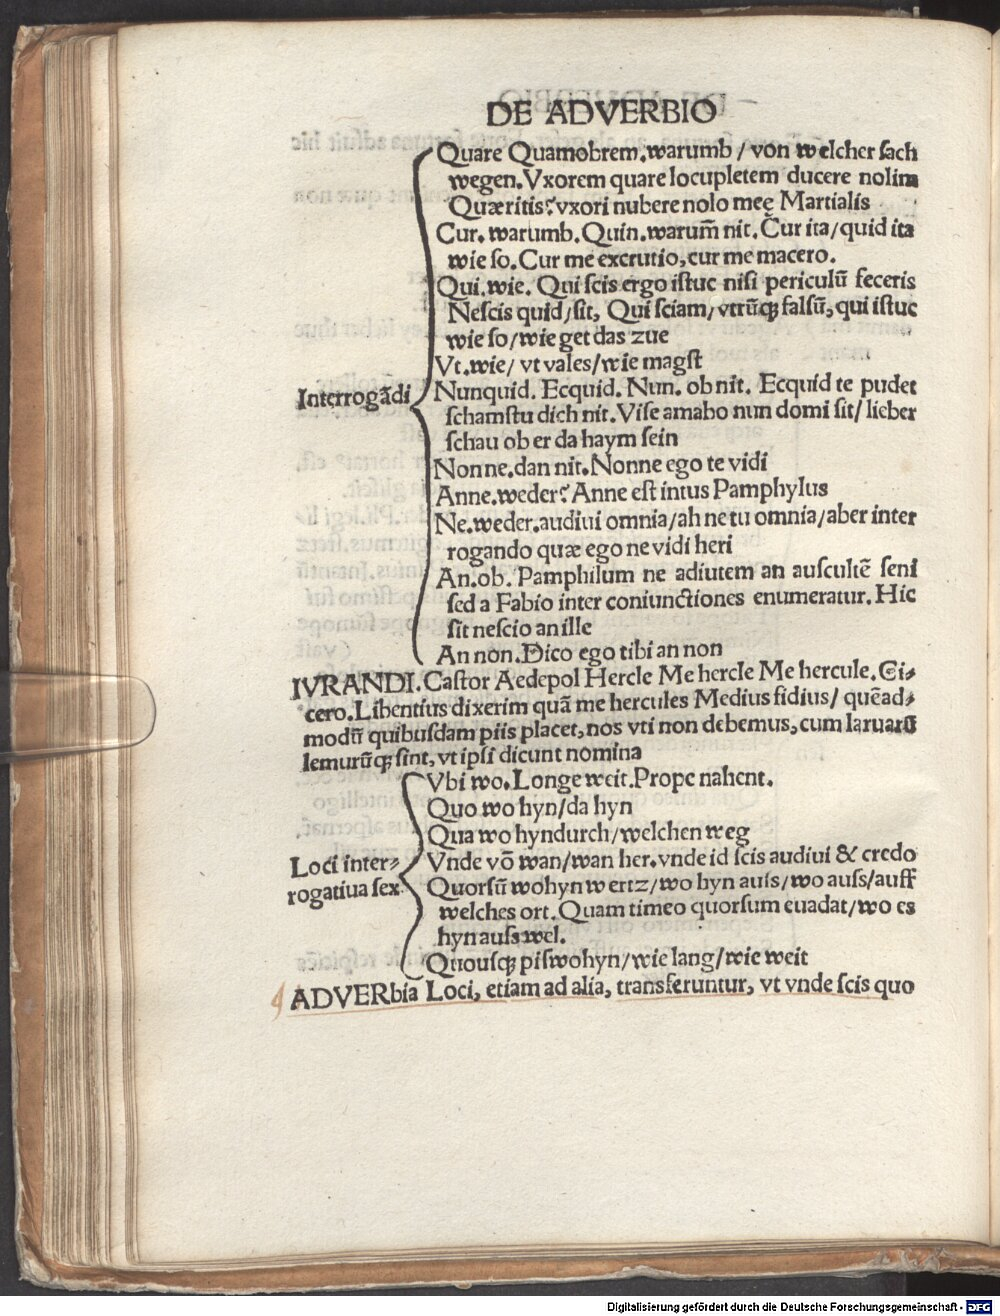 DE ADVERBIO
Quare Quamobrem.warumb / von welcher sach
wegen.Vxorem quare locupletem ducere nolim
Quæritis? vxori nubere nolo meę Martialis
Cur. warumb. Quin. warum̃ nit. Cur ita/quid ita
wie so. Cur me excrutio, cur me macero.
Qui. wie. Qui scis ergo istuc nisi periculũ feceris
Nescis quid/sit, Qui sciam/vtrũq; falsũ, qui istuc
wie so/wie get das zue
Vt. wie/ vt vales/wie magst
Interrogãdi
Nunquid. Ecquid. Nun. ob nit. Ecquid te pudet
schamstu dich nit. Vise amabo nun domi sit/ lieber
schau ob er da haym sein
Nonne. dan nit. Nonne ego te vidi
Anne. weder? Anne est intus Pamphylus
Ne. weder. audiui omnia/ah ne tu omnia/aber inter
rogando quæ ego ne vidi heri
An. ob. Pamphilum ne adiutem an auscultẽ seni
sed a Fabio inter coniunctiones enumeratur. Hic
sit nescio an ille
An non. Dico ego tibi an non
IVRANDI. Castor Aedepol Hercle Me hercle Me hercule. Ci⸗
cero. Libentius dixerim quã me hercules Medius fidius/ quẽad⸗
modũ quibusdam piis placet, nos vti non debemus, cum laruarũ
lemurũq; sint, vt ipsi dicunt nomina
Vbi wo. Longe weit. Prope nahent.
Quo wo hyn/da hyn
Qua wo hyndurch/welchen weg
Loci inter⸗
rogatiua sex.
Vnde võ wan/wan her. vnde id scis audiui & credo
Quorsũ wohyn wertz/wo hyn auss/wo auss/auff
welches ort. Quam timeo quorsum euadat/wo es
hyn auss wel.
Quousq; piswohyn/wie lang/wie weit
ADVERbia Loci, etiam ad alia, transferuntur, vt vnde scis quo
Digitalisierung gefördert durch die Deutsche Forschungsgemeinschaft - DFG